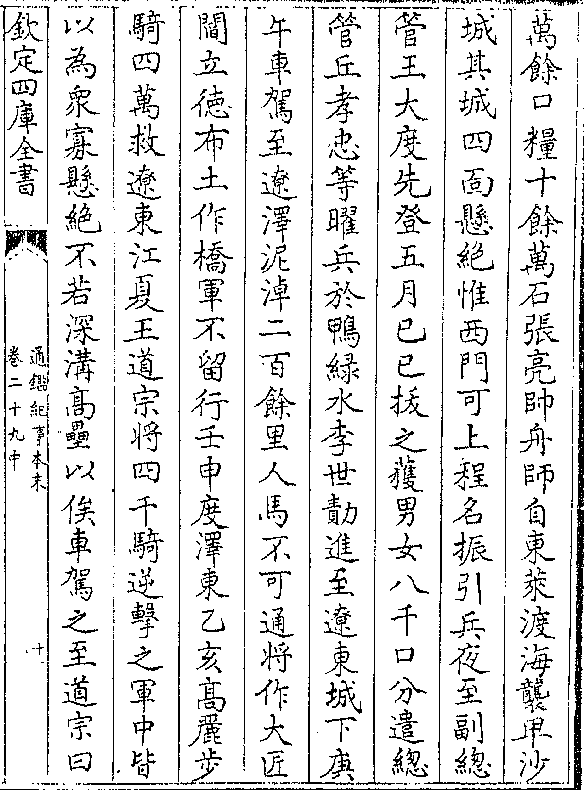 萬餘口糧十餘萬石張亮帥舟師自東萊渡海襲卑沙
城其城四面懸絶惟西門可上程名振引兵夜至副總
管王大度先登五月己巳拔之獲男女八千口分遣總
管丘孝忠等曜兵於鴨緑水李世勣進至遼東城下庚
午車駕至遼澤泥淖二百餘里人馬不可通將作大匠
閻立德布土作橋軍不留行壬申度澤東乙亥高麗步
騎四萬救遼東江夏王道宗將四千騎逆擊之軍中皆
以為衆寡懸絶不若深溝髙壘以俟車駕之至道宗曰
欽定四庫全書
通鑑紀事本末
卷二十九中
十